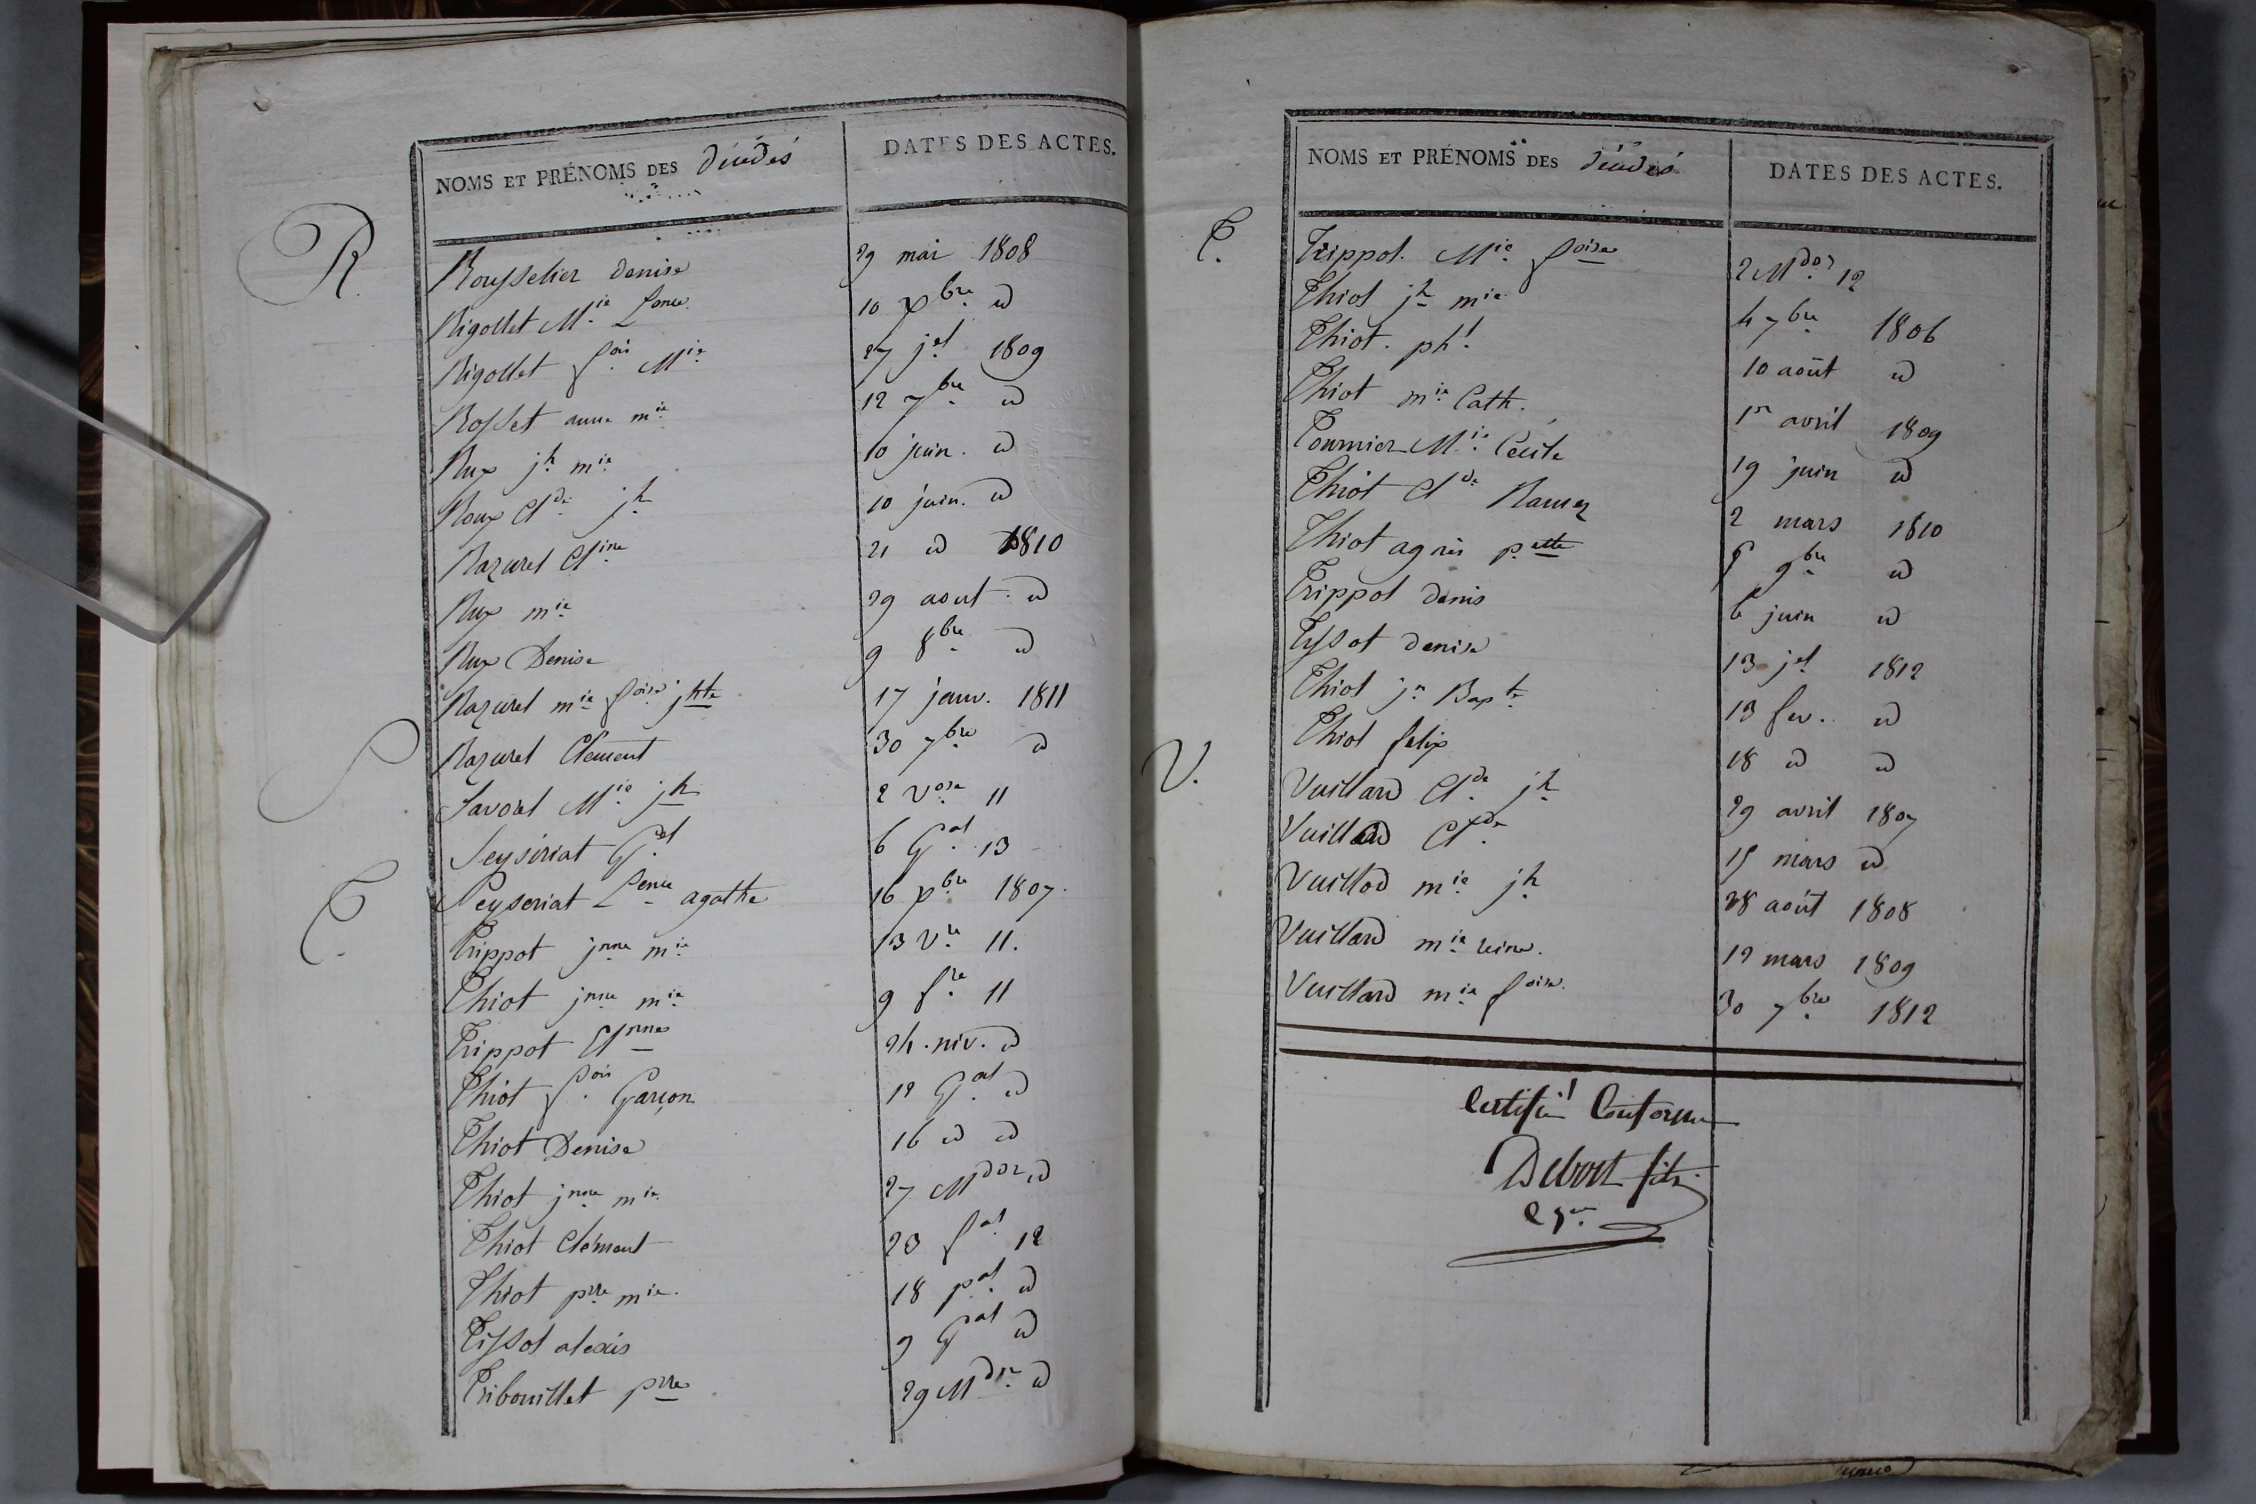 NOMS ET PRÉNOMS DES décédés DATES DES ACTES.
R. Rousselier denise 29 mai 1808
Rigollet Mie Lence 10 xbre id
Rigollet fois Mie 27 jet 1809
Rosset anne mie 12 7bre id
Rux jh mie 10 juin. id
Roux Cde jh 10 juin. id
Nazurel Cline 21 id 1810
Rux mie 29 aout id
Rux Denise 9 8bre id
Nazurel mie foise jhte 17 janv. 1811
Nazurel Clément 30 7bre id
S Savorel Mie jh 2 vose 11
Seyseriat Gel 6 Gal 13
Seyseriat Lence agathe 16 xbre 1807.
T. Trippot jnne mie 13 Vre 11.
Thiot jnne mie 9 fre 11
Trippot Etnne 24. niv. id
Thiot fois Garçon 12 Gal id
Thiot Denise 16 id id
Thiot jnne mie 27 Mdor id
Thiot Clémant 23 fal 12
Thiot prre mie. 18 pal id
Tissot alexis 9 Gal id
Tribouillet prre 29 Mdor id
NOMS ET PRÉNOMS DES décédés DATES DES ACTES.
T. Trippot. Mie foise 2 Mdor 12
Thiot jh mie 4 7bre 1806
Thiot. pht 10 août id
Thiot mie Cath. 1er avril 1809
Tournier Mie Cécile 19 juin id
Thiot Cde 2 mars 1810
Thiot agnès pette 9bre id
Trippot denis 6 juin id
Tissot denise 13 jet 1812
Thiot jn Bapte 13 fev. id
Thiot felix 18 id id
V. Vuillard Cde jh 29 avril 1807
Vuillard Cde 15 mars id
Vuillod mie jh 28 août 1808
Vuillard mie reine. 12 mars 1809
Vuillard mie foise. 30 7bre 1812
Certifié Conforme
Debost fils